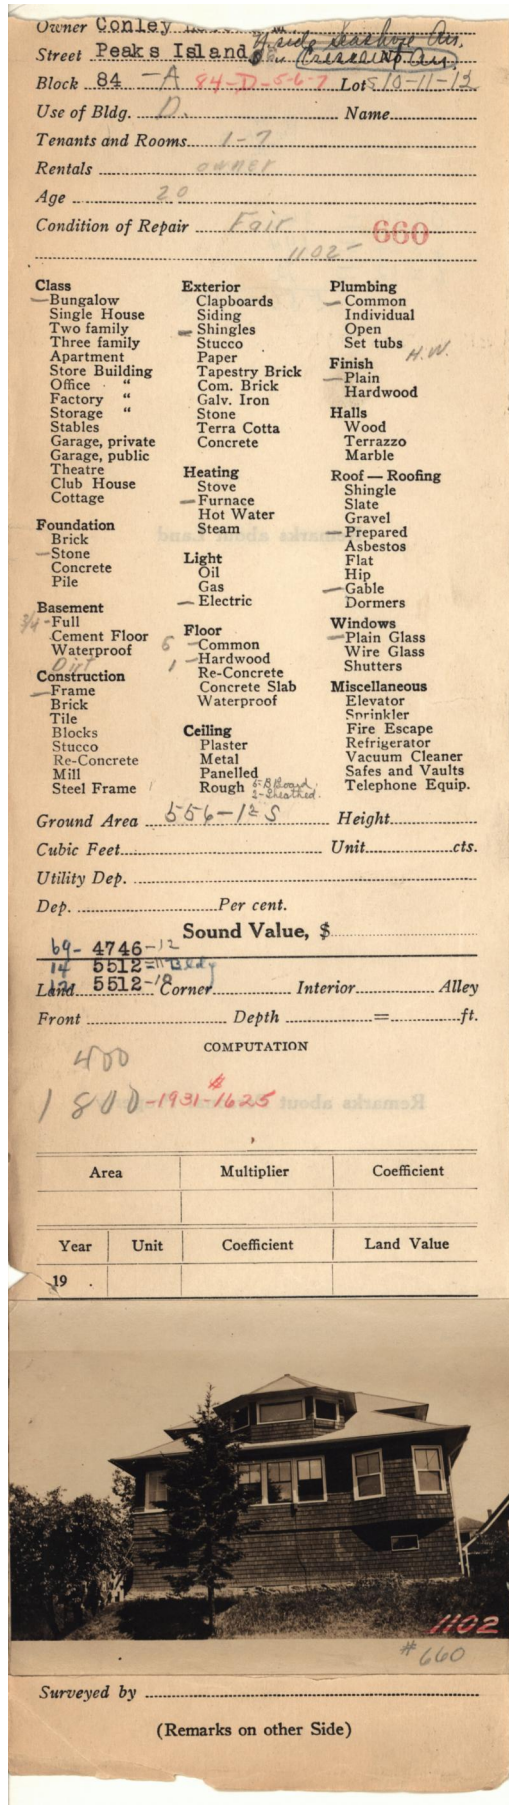 Owner Conley
Street Peaks Island
Block 84 -A 84-D-5-6-7 Lots 10-11-12
Use of Bldg. D. Name
Tenants and Rooms 1-7
Rentals owner
Age 20
Condition of Repair Fair 660
1102-
Class
Bungalow
Single House
Two family
Three family
Apartment
Store Building
Office "
Factory "
Storage "
Stables
Garage, private
Garage, public
Theatre
Club House
Cottage
Foundation
Brick
Stone
Concrete
Pile
Basement
3/4 - Full
Cement Floor
Waterproof
Dirt
Construction
Frame
Brick
Tile
Blocks
Stucco
Re-Concrete
Mill
Steel Frame
Exterior
Clapboards
Siding
Shingles
Stucco
Paper
Tapestry Brick
Com. Brick
Galv. Iron
Stone
Terra Cotta
Concrete
Heating
Stove
Furnace
Hot Water
Steam
Light
Oil
Gas
Electric
Floor
6 - Common
1 - Hardwood
Re-Concrete
Concrete Slab
Waterproof
Ceiling
Plaster
Metal
Panelled
Rough 5-B Board
2-Sheathed.
Plumbing
Common
Individual
Open
Set tubs
H.W.
Finish
Plain
Hardwood
Halls
Wood
Terrazzo
Marble
Roof — Roofing
Shingle
Slate
Gravel
Prepared
Asbestos
Flat
Hip
Gable
Dormers
Windows
Plain Glass
Wire Glass
Shutters
Miscellaneous
Elevator
Sprinkler
Fire Escape
Refrigerator
Vacuum Cleaner
Safes and Vaults
Telephone Equip.
Ground Area 556-1 S Height
Cubic Feet Unit cts.
Utility Dep.
Dep. Per cent.
Sound Value, $
69- 4746-12
14 5512=11 Bldg
Land 5512-10 Corner Interior Alley
Front Depth = ft.
COMPUTATION
400
1800-1931-$1625
Area Multiplier Coefficient
Year Unit Coefficient Land Value
19
1102
#660
Surveyed by
(Remarks on other Side)